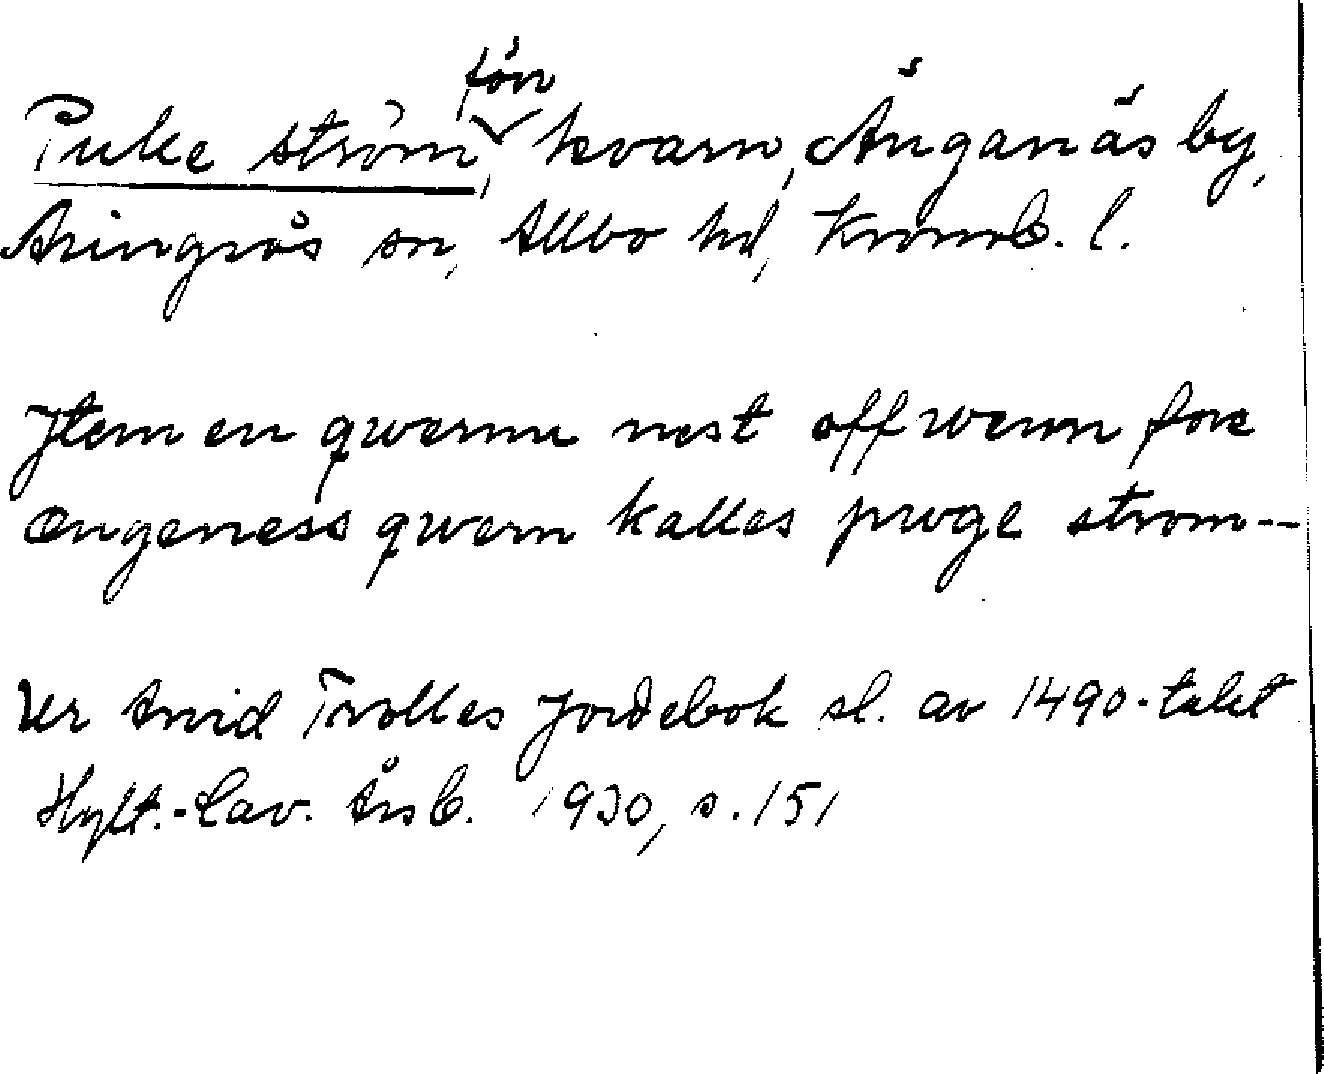 Puke ström, förr kvarn, Änganäs by,
Aringsås sn, Allbo hd, Kronob. l.
Jtem en qwernn nest offwenn fore
ængeness qwern kalles pwge strom--
Ur Arvid Trolles Jordebok sl. av 1490-talet
Hylt.-Cav. Årsb. 1930, s. 151